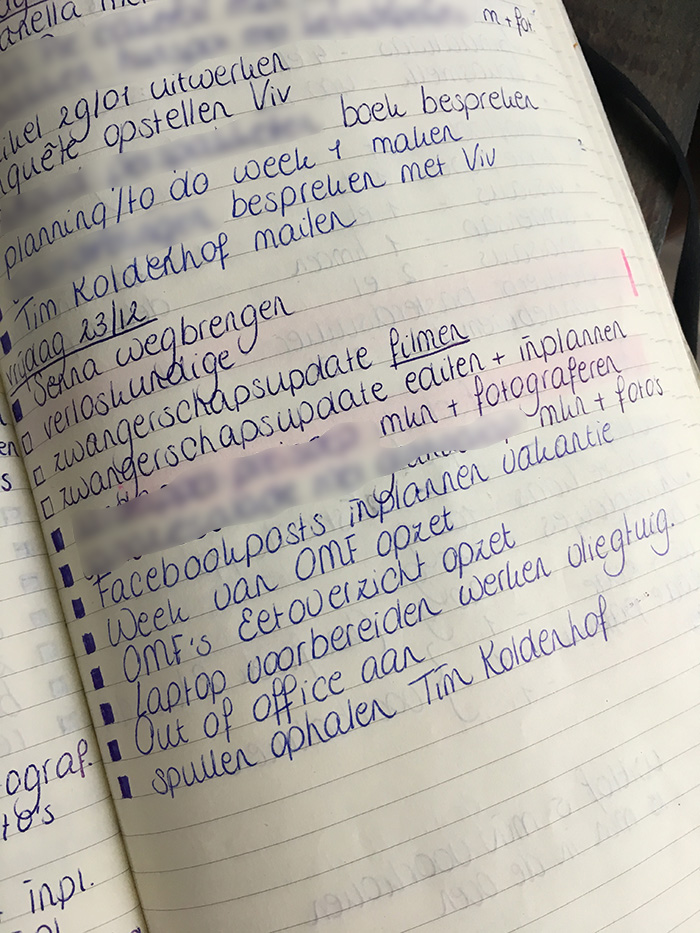 m + fot.
29/01 uitwerken
opstellen Viv
boek bespreken
planning/to do week 1 maken
bespreken met Viv
Tim Koldenhof mailen
vrijdag 23/12
Senna wegbrengen
verloskundige
zwangerschapsupdate filmen
zwangerschapsupdate editen + inplannen
mkn + fotograferen
mkn + fotos
Facebookposts inplannen vakantie
Week van OMF opzet
OMF's Eetoverzicht opzet
Laptop voorbereiden werken vliegtuig.
Out of office aan
spullen ophalen Tim Koldenhof
ograf.
to's
inpl.